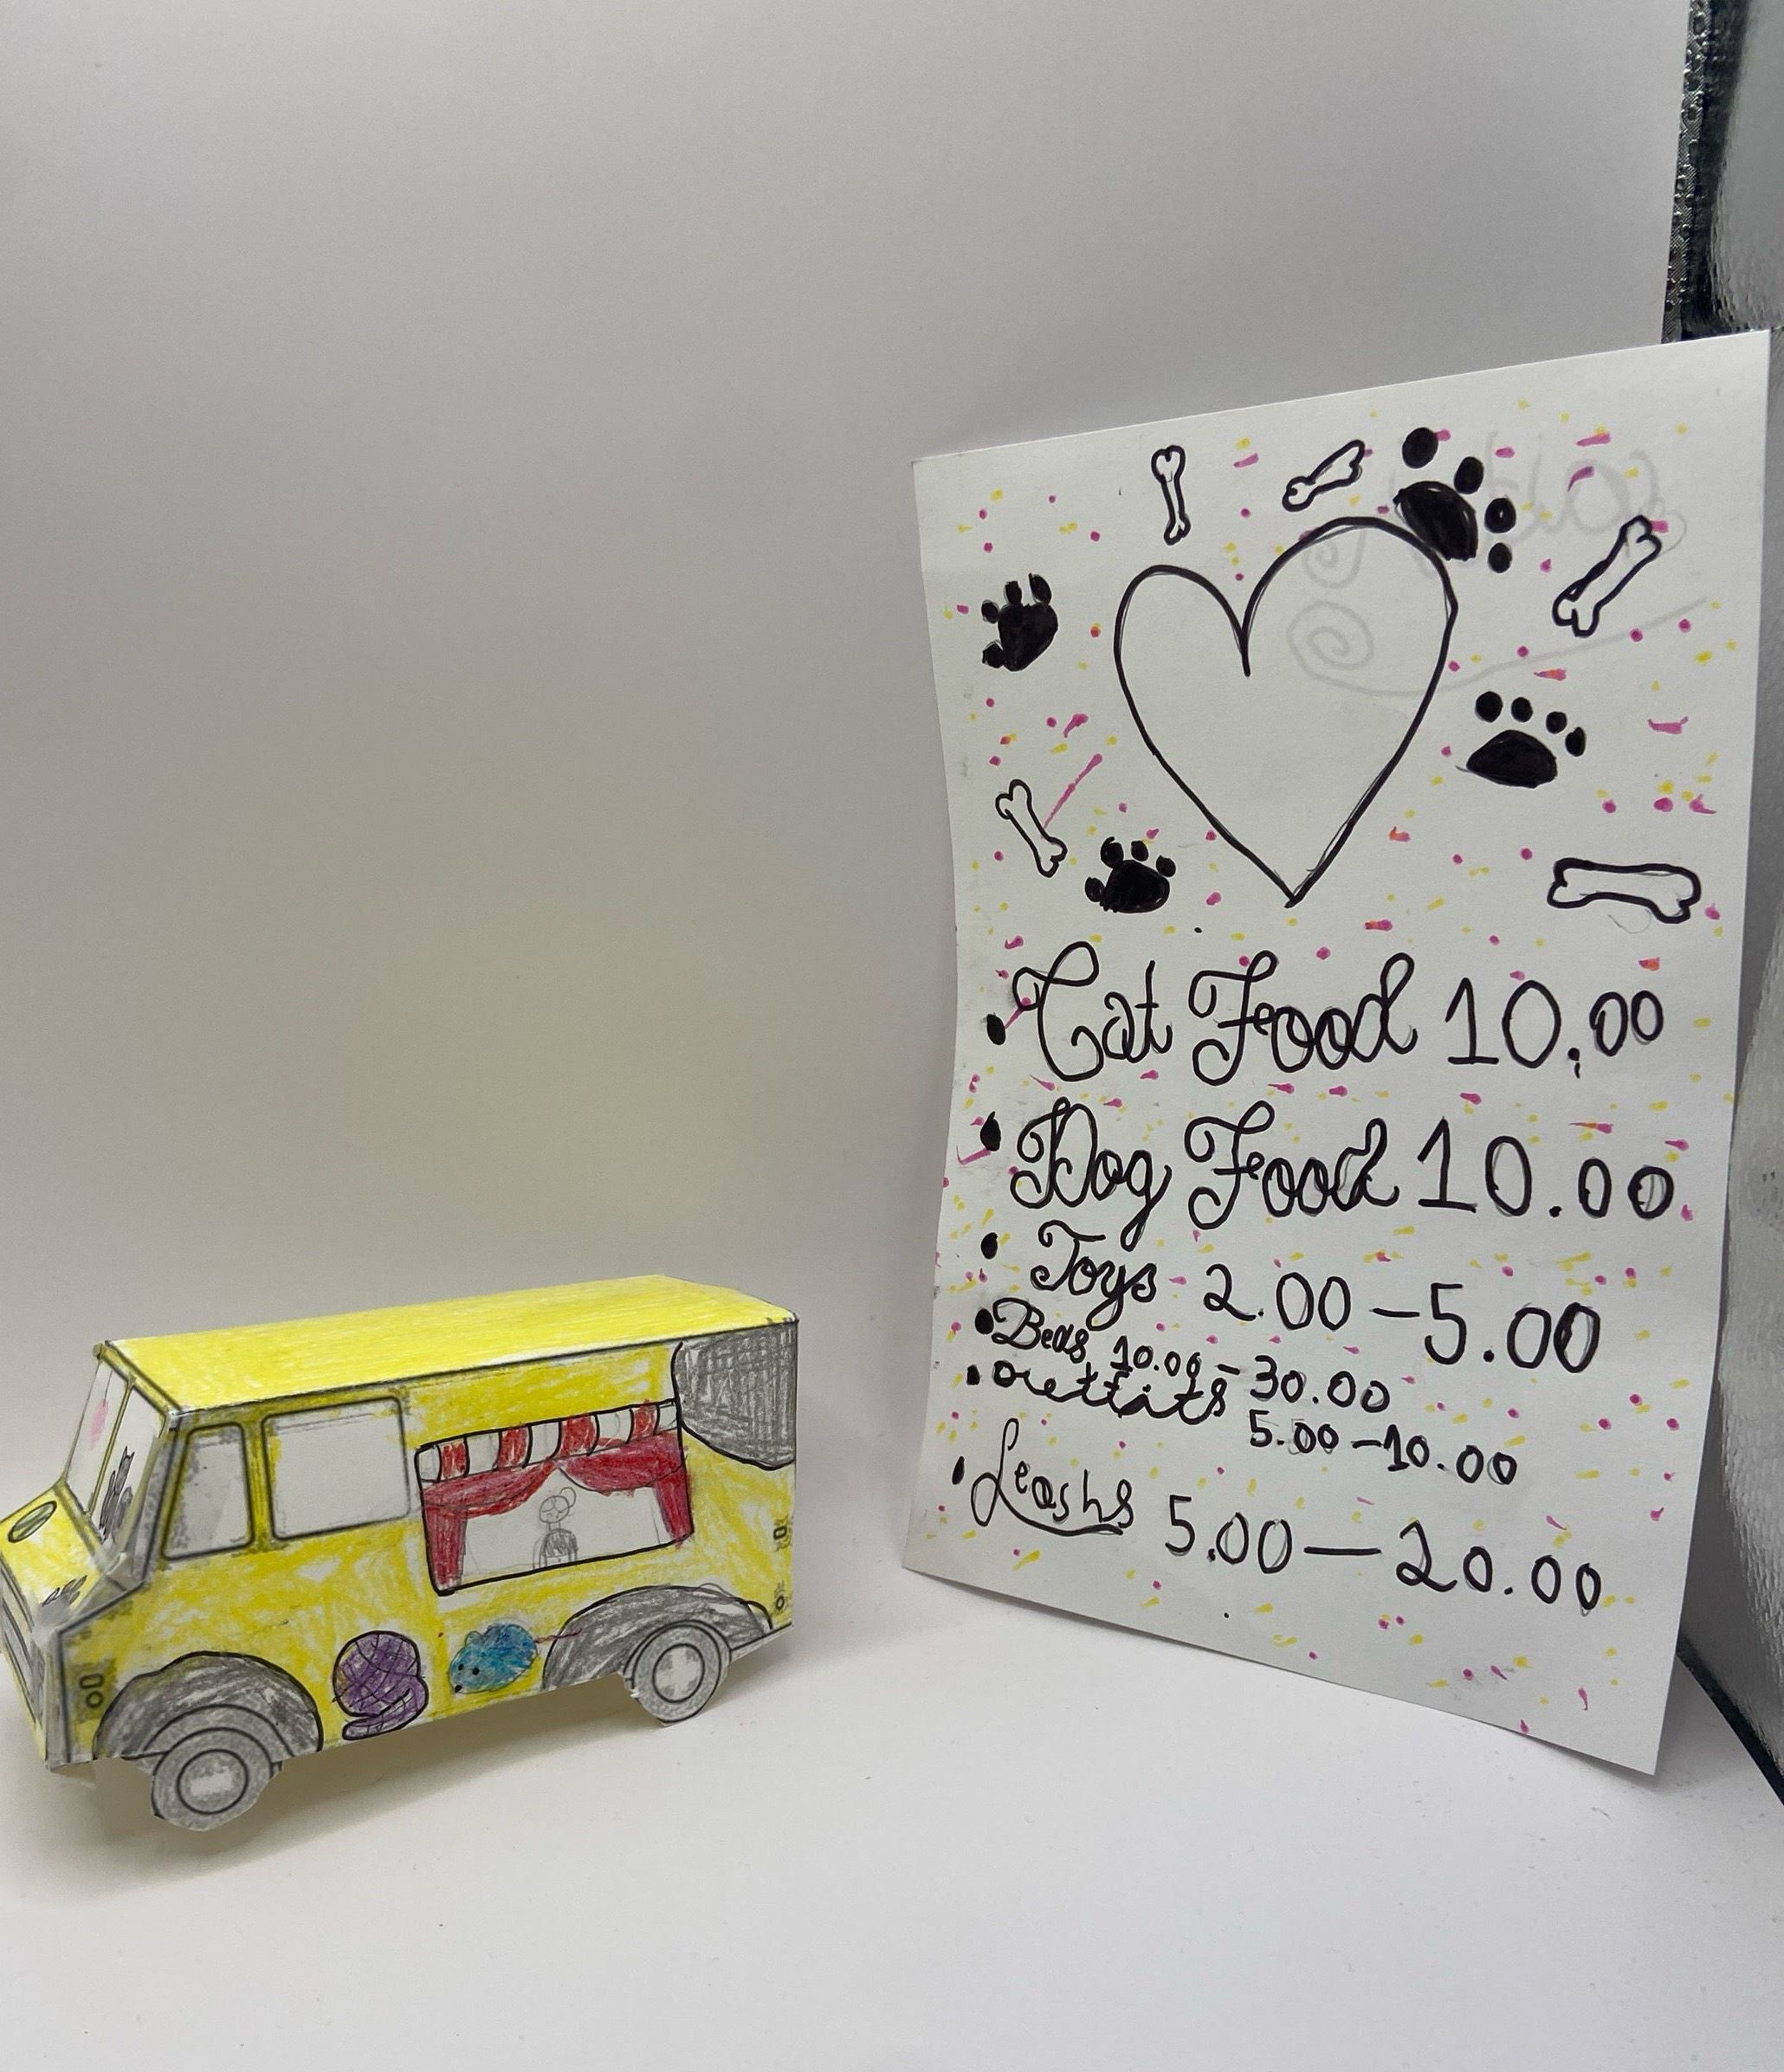 • Cat Food 10.00
• Dog Food 10.00
• Toys 2.00 – 5.00
• Beds 10.00 – 30.00
• 
5.00 – 10.00
• Leashs 5.00 – 20.00